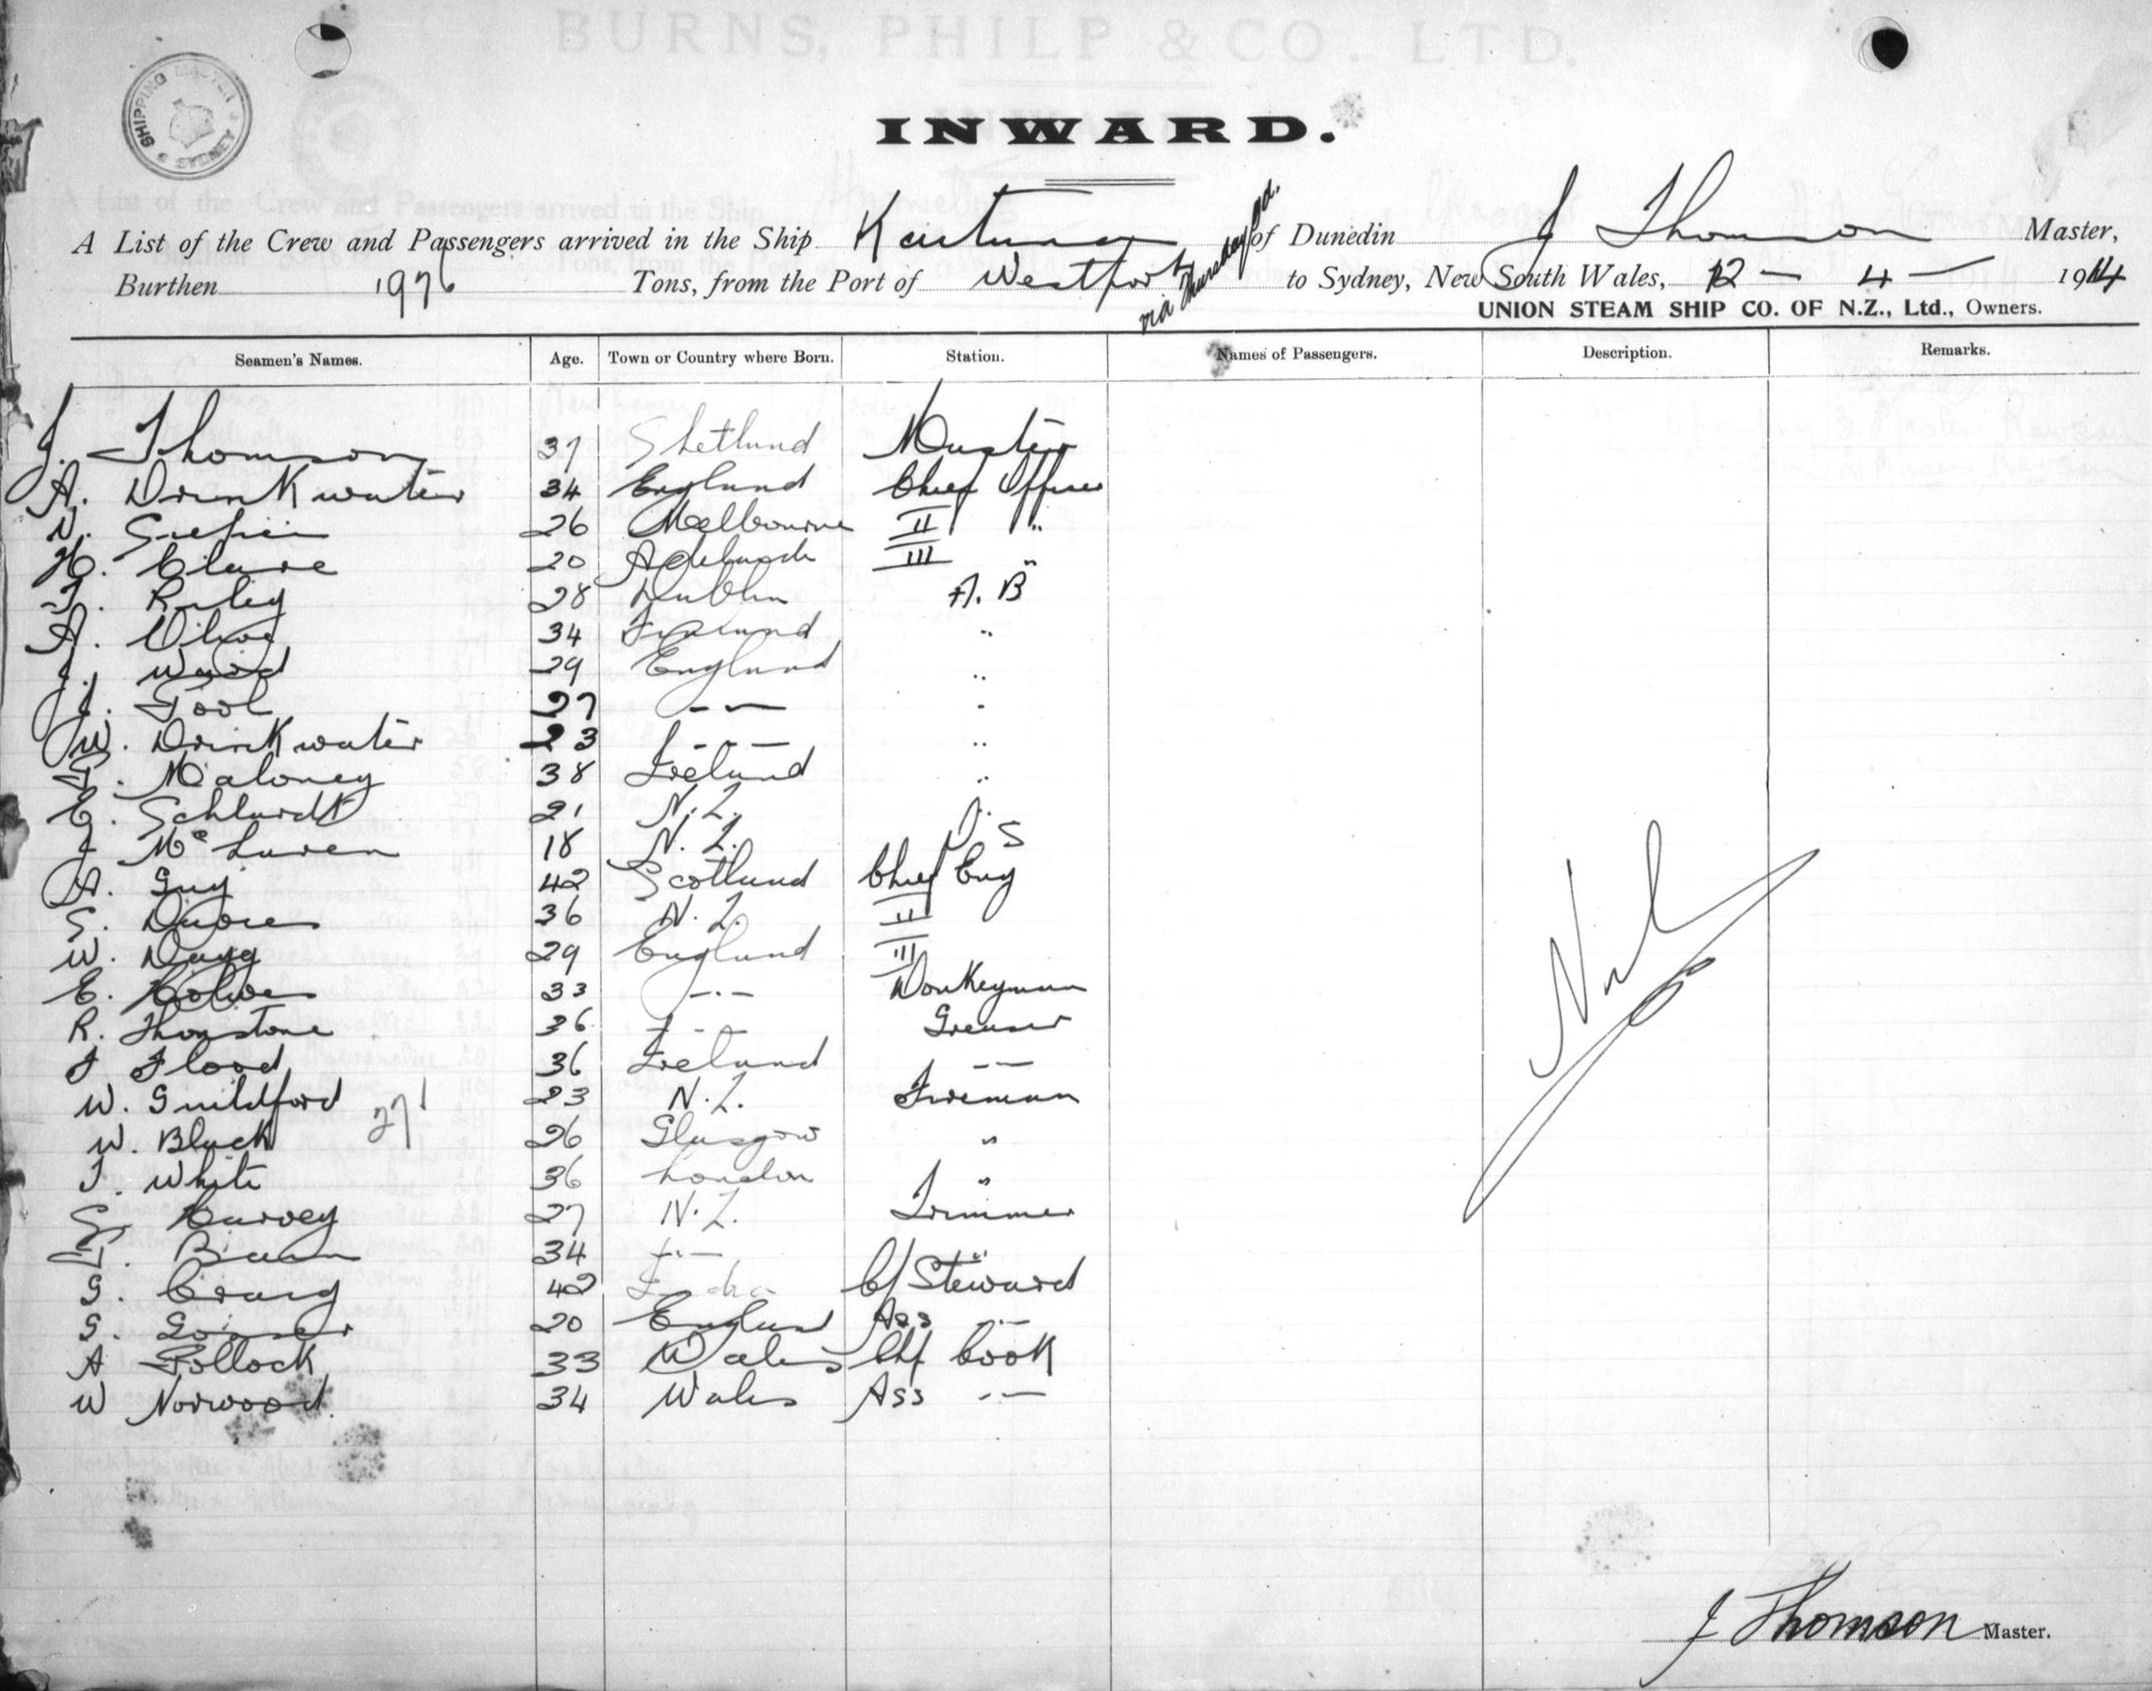 BURNS, PHILP & CO. LTD.
SHIPPING MASTER SYDNEY
INWARD.
A List of the Crew and Passengers arrived in the Ship Kaituna of Dunedin J Thomson Master,
Burthen 1976 Tons, from the Port of Westport via Thursday Id. to Sydney, New South Wales, 12 - 4 - 1914
UNION STEAM SHIP CO. OF N.Z., Ltd., Owners.
Seamen's Names. Age. Town or Country where Born. Station. Names of Passengers. Description. Remarks.
J. Thomson 37 Shetland Master
A. Drinkwater 34 England Chief Officer
N. 26 Melbourne II "
H. Clare 20 Adelaide III "
T. Riley 28 Dublin A. B
A. Olive 34 Finland "
J. Ward 29 England "
J. Pool 27 - - "
W. Drinkwater 23 - - - "
P. Maloney 38 Ireland "
E. Schluardt 21 N. Z. "
J McLaren 18 N. Z. O. S
A. Guy 42 Scotland Chief Eng
S. 36 N. Z. II
W. Dagg 29 England III
E. 33 - - - Donkeyman
R. Thonstone 36 - - - Greaser
J Flood 36 Ireland - -
W. Guildford 23 N. Z. Fireman
27
W. Black 26 Glasgow "
T. White 36 London "
G. Harvey 27 N. Z. Trimmer
34 - - "
G. Craig 42 C/ Steward
G. 20 England Ass - -
A Pollock 33 Wales Chf Cook
W Norwood 34 Wales Ass - -
Nil
J Thomson Master.